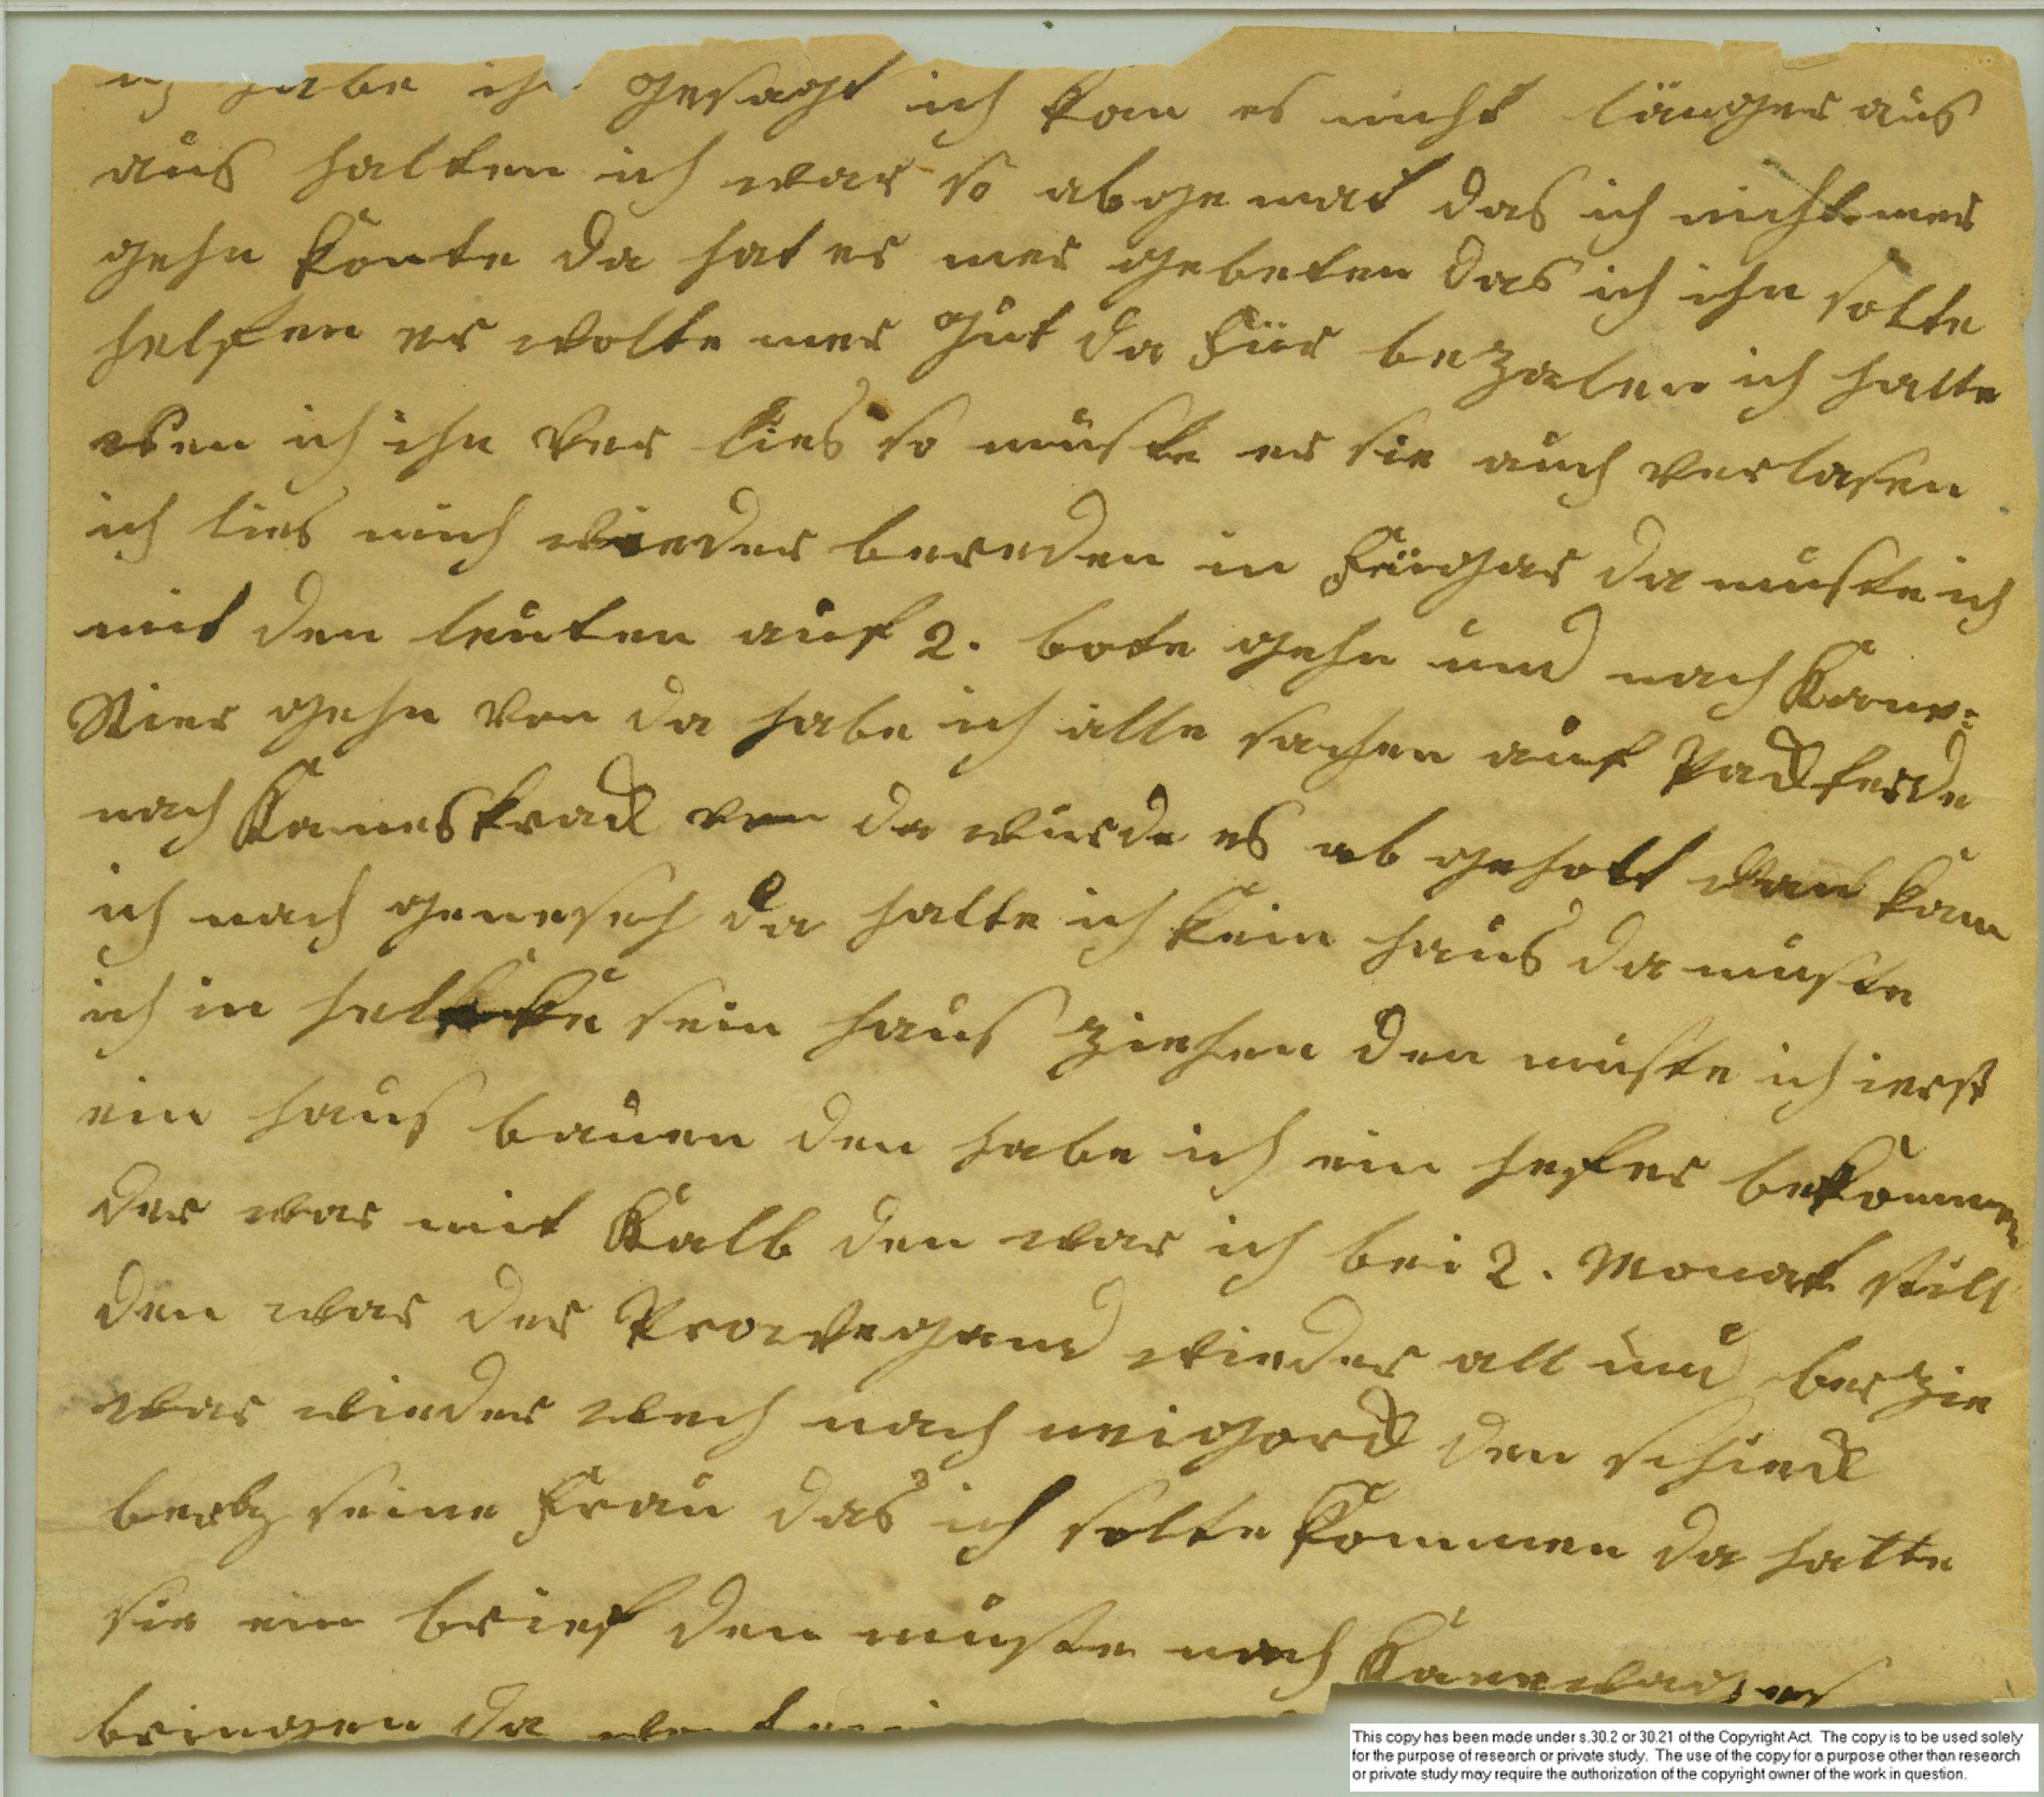 habe ihn gesagt ich kan es nicht länger aus
aus halten ich war so abgemat das ich nicht mer
gehn konte da hat er mer gebeten das ich ihn solte
helfen er wolte mer gut da für bezalen ich hatte
wen ich ihn ver lies so muste er sie auch verlasen
ich lies mich wieder bereden in da muste ich
mit den leuten auf 2. bote gehn und nach Kane=
Stier gehn von da habe ich alle sachen auf Packferde
nach von da wurde es ab geholt dan kam
ich nach genesech da hatte ich kein haus da muste
ich in sein haus ziehen den muste ich ierst
ein haus bauen den habe ich ein hefer bekommen
der war mit Kalb den war ich bei 2. Monat still
den war der Prowegand wieder all und berzie
war wieder wech nach neigorck den schick
berzy seine Frau das ich solte kommen da hatte
sie ein brief den muste nach
bringen da
This copy has been made under s.30.2 or 30.21 of the Copyright Act. The copy is to be used solely
for the purpose of research or private study. The use of the copy for a purpose other than research
or private study may require the authorization of the copyright owner of the work in question.